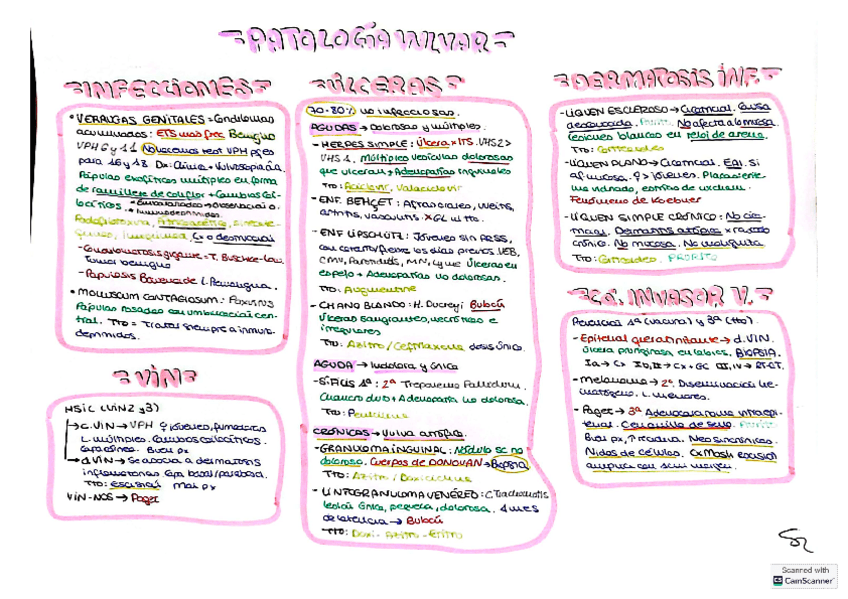 PATOLOGÍA VULVAR
INFECCIONES
• VERRUGAS GENITALES = Condilomas
acuminados: ETS más frec Benigno
VPH 6 y 11 No hacemos test VPH pq es
para 16 y 18 Dx: Clínica + Vulvoscopia
Pápulas exofíticas múltiples en forma
de ramillete de coliflor + Cambios coi-
locíticos.
Podofilotoxina,
imiquimod, Cx o desmocal
- Condilomatosis gigante = T. Buschke-Low.
tumor benigno
- Papulosis Bowenoide L. Pearlaugua.
• MOLUSCUM CONTAGIOSUM: Poxvirus
Pápulas rosadas con umbilicación cen-
tral. Tto = Tratar siempre a inmuno-
deprimidos.
VIN
HSIL (VIN 2 y 3)
→ c. VIN → VPH ♀ jóvenes, fumadoras
L. múltiples. Cambios coilocíticos.
Buen px
→ d. VIN → Se asocia a dermatosis
inflamatorias
Tto: escisión Mal px
VIN-NOS → Paget
ÚLCERAS
70-80% no infecciosas.
AGUDAS → Dolorosas y múltiples.
- HERPES SIMPLE: Úlcera x ITS. VHS 2 >
VHS 1. Múltiples vesículas dolorosas
que ulceran + Adenopatías inguinales
Tto: Aciclovir, Valaciclovir
- ENF. BEHÇET: Aftas orales, uveítis,
artritis, vasculitis x GC ul tto.
- ENF LIPSCHÜTZ: Jóvenes sin RRSS,
con catarro/fiebre los días previos. VEB,
CMV, Parotiditis, MN, Úlceras en
espejo + Adenopatías no dolorosas.
Tto: Augmentine
- CHANCRO BLANDO: H. Ducreyi Bubón
Úlceras sangrantes, necróticas e
irregulares
Tto: Azitro / Ceftriaxona dosis única.
AGUDA → Indolora y única
- SÍFILIS 1ª: 2ª Treponema Pallidum.
Chancro duro + Adenopatía no dolorosa.
Tto: Penicilina
CRÓNICAS → Vulva atrófica.
- GRANULOMA INGUINAL: Nódulo sc no
doloroso. Cuerpos de DONOVAN → Biopsia
Tto: Azitro / Doxiciclina
- LINFOGRANULOMA VENÉREO: C. Trachomatis
lesión única, pequeña, dolorosa. 1 mes
de latencia → Bubón
Tto: Doxi - Azitro - Eritro
DERMATOSIS INF.
- LIQUEN ESCLEROSO → Cicatricial. Causa
desconocida. Prurito. No afecta a la mucosa.
lesiones blancas en reloj de arena.
Tto: Corticoides
- LIQUEN PLANO → Cicatricial. EAI. Sí
af. mucosa. ♀ > jóvenes. Placas erite-
ma violáceo, estrías de wickham.
Fenómeno de Koebner
- LIQUEN SIMPLE CRÓNICO: No cica-
tricial. Dermatitis atópica x rascado
crónico. No mucosa. No maligniza
Tto: Corticoides. PRURITO
Ca. INVASOR V.
Pervical 1ª (vacuna) y 3ª (tto).
- Epitelial queratinizante → d. VIN.
Úlcera pruriginosa en labios. BIOPSIA.
Ia → Cx Ib, II → Cx + GC III, IV → RT-QT.
- Melanoma → 2º. Diseminación he-
matógena. L. menores.
- Paget → 3º Adenocarcinoma intraepi-
telial. Ca. mama Prurito
Buen px, ↑ recidiva. Neo sincrónicas.
Nidos de células. Cx Mosh escisión
amplia con
Scanned with
CS CamScanner